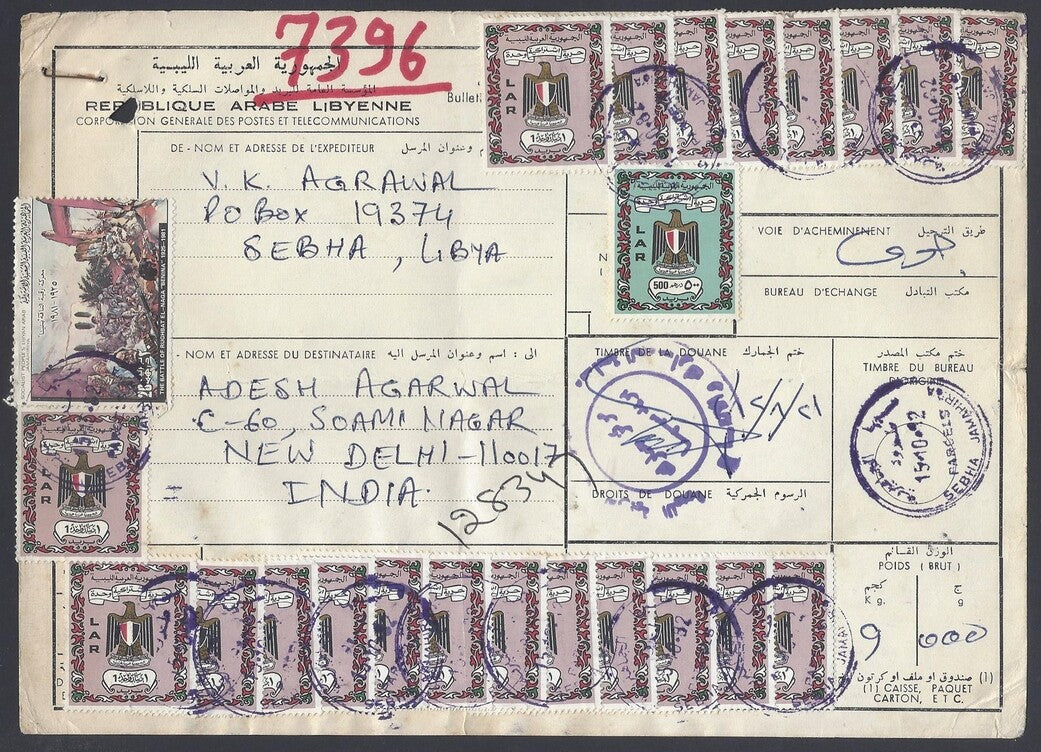 7396
الجمهورية العربية الليبية
المؤسسة العامة للبريد والمواصلات السلكية واللاسلكية
REPUBLIQUE ARABE LIBYENNE
CORPORATION GENERALE DES POSTES ET TELECOMMUNICATIONS
Bullet
DE - NOM ET ADRESSE DE L'EXPEDITEUR وعنوان المرسل
V. K. AGRAWAL
PO BOX 19374
SEBHA, LIBYA
LAR
LAR
500
بريد
VOIE D'ACHEMINENENT طريق الترحيل
BUREAU D'ECHANGE مكتب التبادل
THE BATTLE OF RUGHBAT EL-NAGA "BENINA" 1925-1981
- NOM ET ADRESSE DU DESTINATAIRE الى : اسم وعنوان المرسل اليه
ADESH AGARWAL
C-60, SOAMI NAGAR
NEW DELHI-110017
INDIA
12834
TIMBRE DE LA DOUANE ختم الجمارك
ختم مكتب المصدر
TIMBRE DU BUREAU
D'ORIGINE
SEBHA JAMAHIRIA
PARCELS
DROITS DE DOUANE الرسوم الجمركية
LAR
الوزن القائم
POIDS ( BRUT )
كجم ج
Kg. g
9 000
LAR
(1) صندوق او ملف او كرتون
(1) CAISSE, PAQUET
CARTON, ETC.